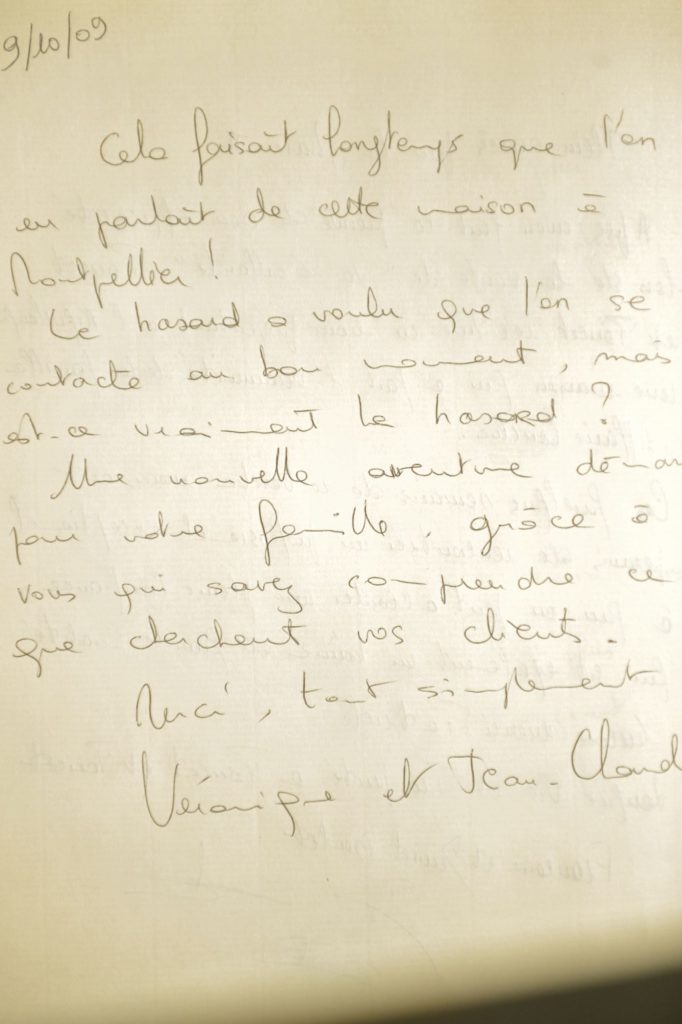 9/10/09
Cela faisait longtemps que l'on
en parlait de cette maison à
Montpellier !
Le hasard a voulu que l'on se
contacte au bon moment, mais
est-ce vraiment le hasard ?
Une nouvelle aventure démar
pour votre famille, grâce à
vous qui savez comprendre ce
que cherchent vos clients.
Merci, tout simplement
Véronique et Jean-Claud